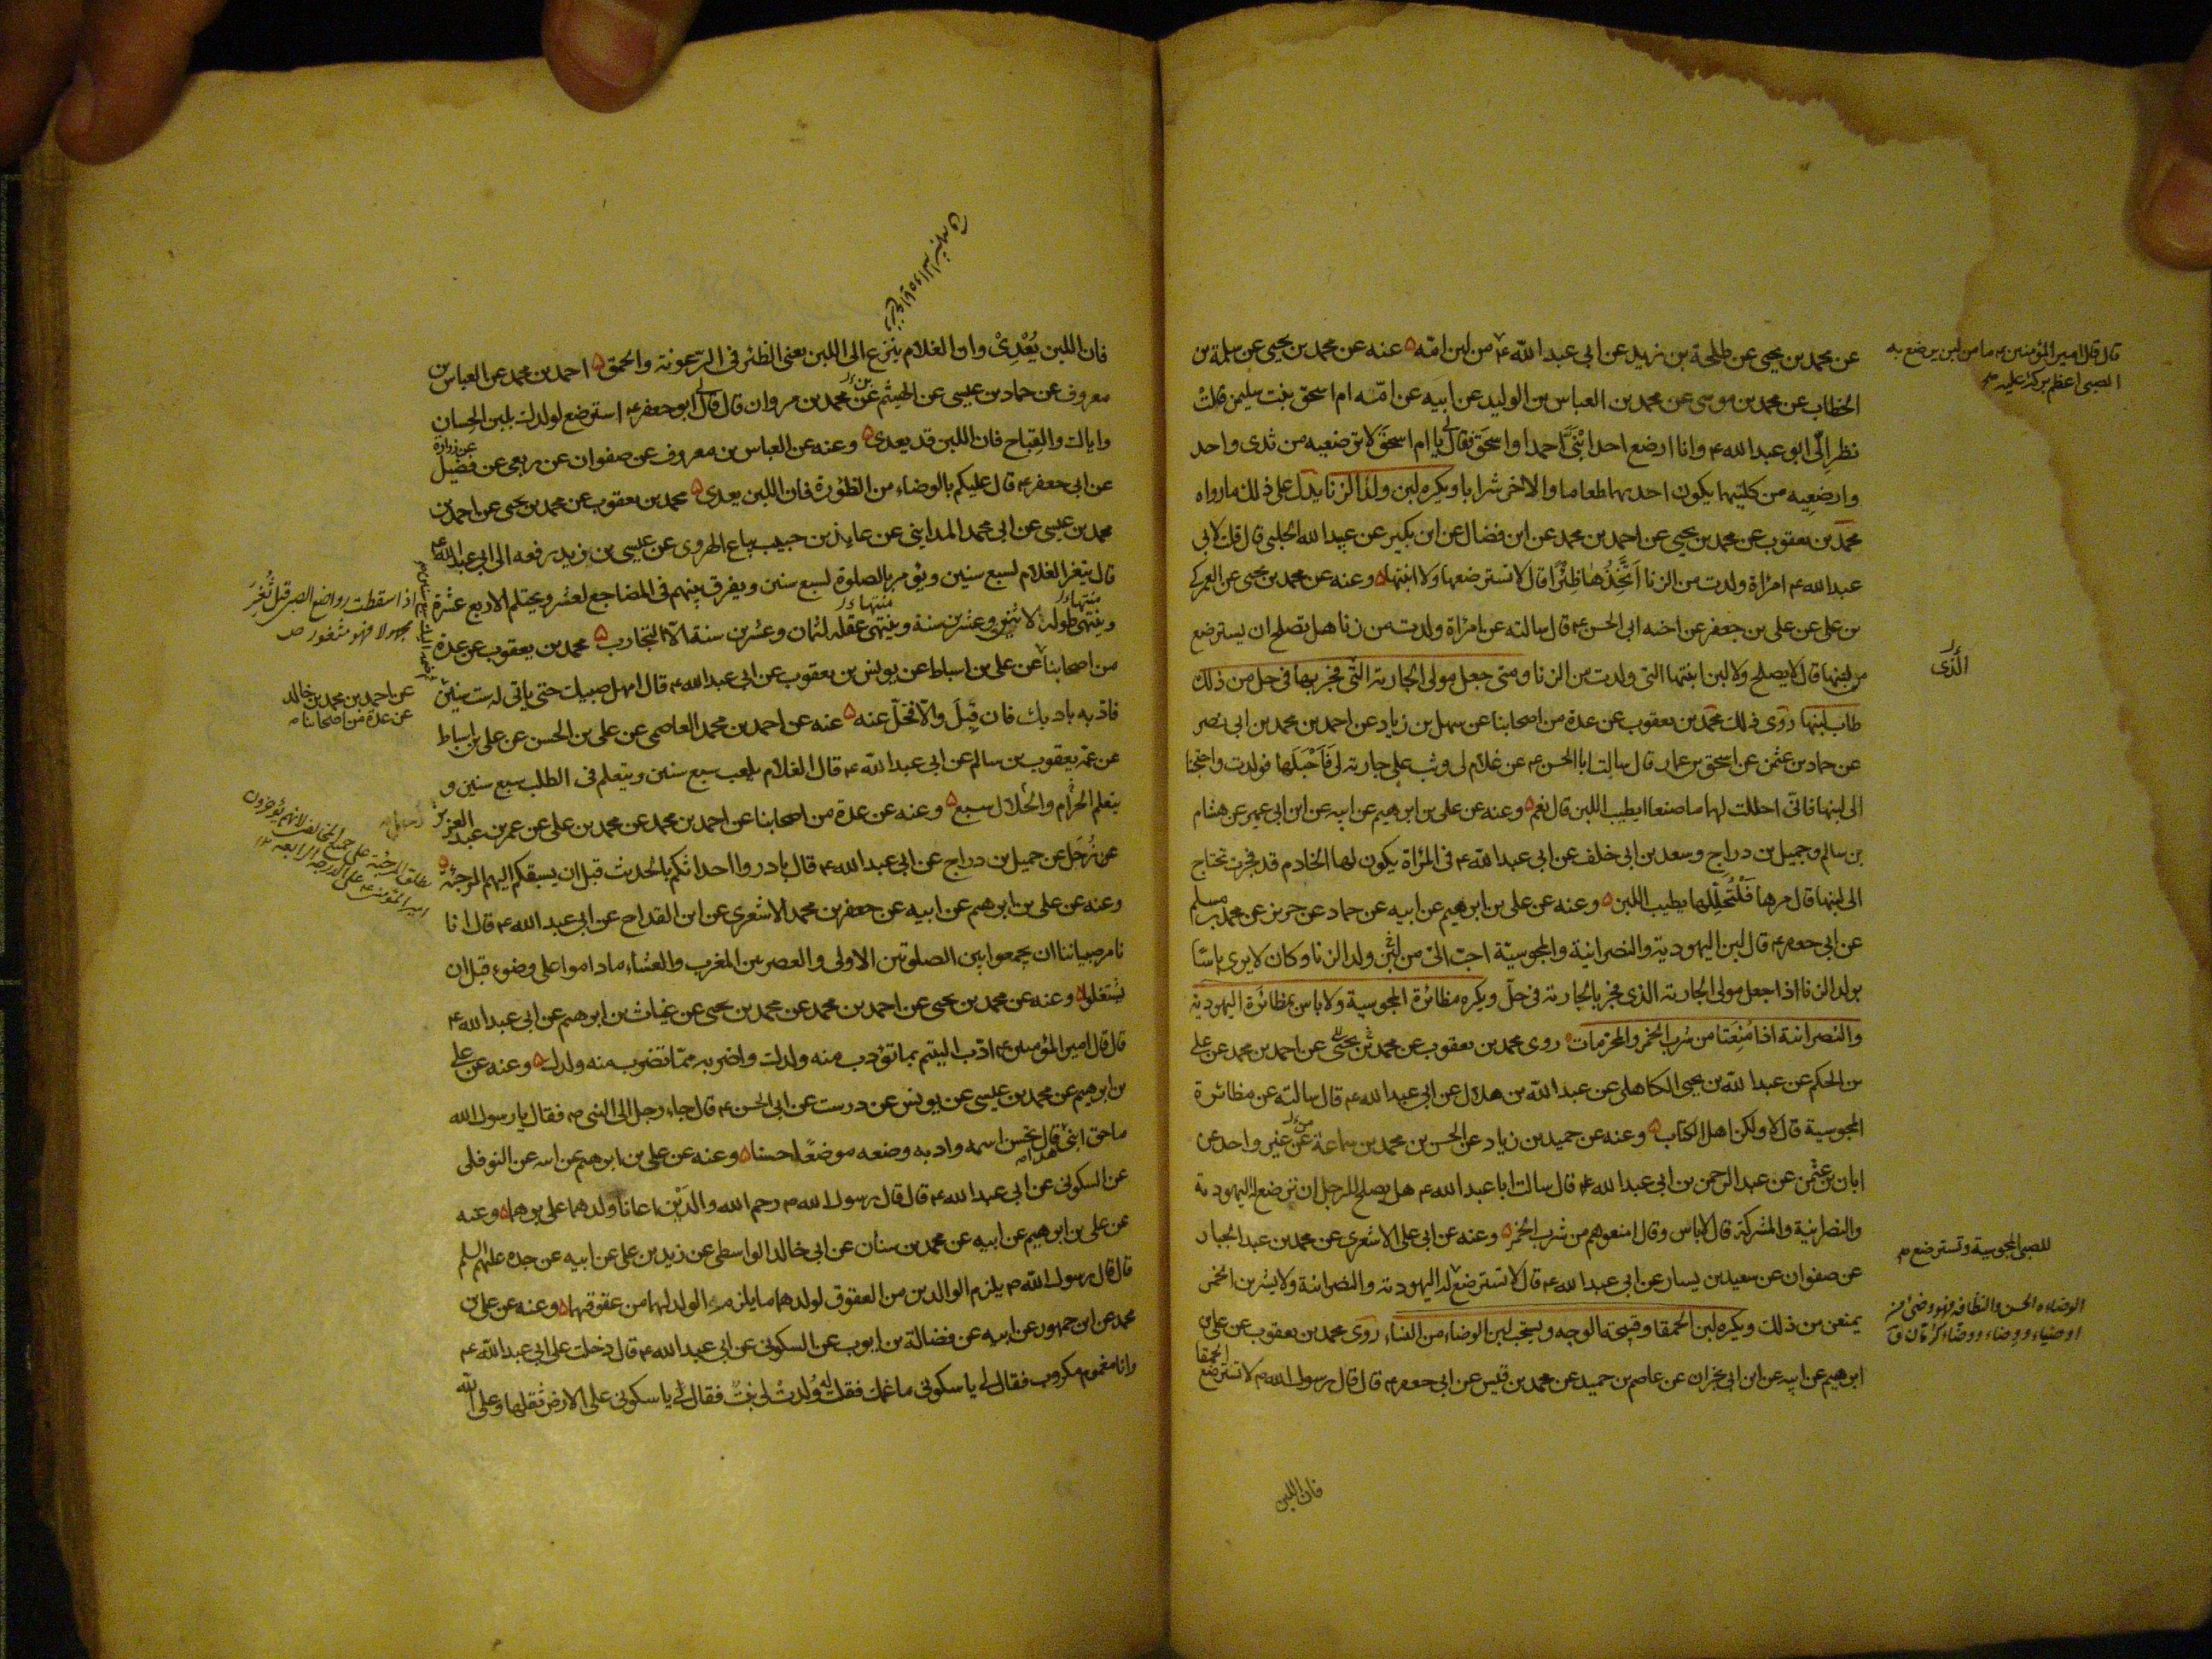 عن محمد بن يحيى عن طلحة بن زيد عن ابى عبد الله ع من لبن امّه ه عنه عن محمد بن يحيى عن سلمة بن
الخطاب عن محمد بن موسى عن محمد بن العباس بن الوليد عن ابيه عن امّه ام اسحق بنت سليمن قالت
نظر الىّ ابو عبد الله ع وانا ارضع احد ابْنَىَّ محمدا واسحق فقال لى يا ام اسحق لا ترضعيه من ثدى واحد
وارضعِيه من كليهما يكون احدهما طعاما والاخر شرابا ويكره لبن ولد الزنا يدل على ذلك مارواه
محمد بن يعقوب عن محمد بن يحيى عن احمد بن محمد عن ابن فضال عن ابن بكير عن عبيد الله الحلبى قال قلت لابى
عبد الله ع امراة ولدت من الزنا اَتّخِذُها ظِئْرًا قال لا تسترضعها ولا ابنتها ه وعنه عن محمد بن يحيى عن العمركى
بن على عن على بن جعفر عن اخيه ابى الحسن ع قال سالته عن امراة ولدت من زنا هل يصلح ان يسترضع
من لبنها قال لا يصلح ولا لبن ابنتها التى ولدت من الزنا ومتى جعل مولى الجارية التّى فجر بها فى حل من ذلك
طاب لبنها روى ذلك محمد بن يعقوب عن عدة من اصحابنا عن سهل بن زياد عن احمد بن محمد بن ابى نصر
عن حماد بن عثمن عن اسحق بن عمار قال سالت ابا الحسن ع عن غلام لى وثب على جارية لى فَاَحْبَلَها فولدت واحتجنا
الى لبنها فانّى احللت لهما ما صنعا ايطيب اللبن قال نعم ه وعنه عن على بن ابرهيم عن ابيه عن ابن ابى عمير عن هشام
بن سالم وجميل بن دراج وسعد بن ابى خلف عن ابى عبد الله ع فى المراة يكون لها الخادم قد فجرت تحتاج
الى لبنها قال مرها فَلْتُحَلِّلها يطيب اللبن ه وعنه عن على بن ابرهيم عن ابيه عن حماد عن حريز عن محمد بن مسلم
عن ابى جعفر ع قال لبن اليهودية والنصرانية والمجوسيّة احبّ الىّ من لبن ولد الزنا وكان لا يرى باسًا
بولد الزنا اذا جعل مولى الجارية الذى فجر بالجارية فى حلّ ويكره مظائرة المجوسية ولا باس بمظائرة اليهودية
والنصرانية اذا مُنِعَتا من شرب الخمر والمحرمات ه روى محمد بن يعقوب عن محمد بن يحيى عن احمد بن محمد عن على
بن الحكم عن عبد الله بن يحيى الكاهلى عن عبد الله بن هلال عن ابى عبد الله ع قال سالته عن مظائرة
المجوسية قال لا ولكن اهل الكتاب ه وعنه عن حميد بن زياد عن الحسن بن محمد بن سماعة عن غير واحد عن
ابان بن عثمن عن عبد الرحمن بن ابى عبد الله قال سالت ابا عبد الله ع هل يصلح للرجل ان ترضع له اليهودية
والنصرانية والمشركة قال لا باس وقال امنعوهم من شرب الخمر ه وعنه عن ابى على الاشعرى عن محمد بن عبد الجبار
عن صفوان عن سعيد بن يسار عن ابى عبد الله ع قال لا تسترضع له اليهودية والنصرانية ولا يشربن الخمر
يمنعن من ذلك ويكره لبن الحمقا وقبيحة الوجه ويستحب لبن الوضاء من النساء روى محمد بن يعقوب عن على بن
ابرهيم عن ابيه عن ابن ابى نجران عن عاصم بن حميد عن محمد بن قيس عن ابى جعفر ع قال قال رسول الله ص لا تسترضع الحمقا
فان اللبن
قال قال امير المؤمنين ع ما من لبن يرضع به
الصبى اعظم بركة عليه
الّذى
للصبى المجوسية وتسترضع
الوضاءه الحسن والنظافه
فان اللبن يُعْدِى وان الغلام ينزع الى اللبن يعنى الظئر فى الرعونة والحمق ه احمد بن محمد عن العباس بن
معروف عن حماد بن عيسى عن الهيثم عن محمد بن مروان قال قال لى ابو جعفر ع استرضع لولدك بلبن الحِسان
واياك والقِباح فان اللبن قد يعدى ه وعنه عن العباس بن معروف عن صفوان عن ربعى عن فضيل عن زرارة
عن ابى جعفر ع قال عليكم بالوضاء من الظؤرة فان اللبن يعدى ه محمد بن يعقوب عن محمد بن يحيى عن احمد بن
محمد بن عيسى عن ابى محمد المداينى عن عايذ بن حبيب بياع الهروى عن عيسى بن زيد رفعه الى ابى عبد الله ع
قال يثغر الغلام لسبع سنين ويؤمر بالصلوة لسبع سنين ويفرق بينهم فى المضاجع لعشر ويحتلم لاربع عشرة
وينتهى طوله لاثنين وعشرين سنة وينتهى عقله لثمان وعشرين سنة الا التجارب ه محمد بن يعقوب عن عدة
من اصحابنا عن على بن اسباط عن يونس بن يعقوب عن ابى عبد الله ع قال امهل صبيك حتى ياتى له ست سنين
فادّبه بادبك فان قبِلَ والا فخلّ عنه ه عنه عن احمد بن محمد العاصمى عن على بن الحسن عن على بن اسباط
عن عمّه يعقوب بن سالم عن ابى عبد الله ع قال الغلام يلعب سبع سنين ويتعلم فى الطلب سبع سنين و
يتعلم الحرام والحلال سبع ه وعنه عن عدة من اصحابنا عن احمد بن محمد عن محمد بن على عن عمر بن عبد العزيز
عن رجل عن جميل بن دراج عن ابى عبد الله ع قال بادروا احداثكم بالحديث قبل ان يسبقكم اليهم المرجئة ه
وعنه عن على بن ابرهيم عن ابيه عن جعفر بن محمد الاشعرى عن ابن القداح عن ابى عبد الله ع قال انا
نامر صبياننا ان يجمعوا بين الصلوتين الاولى والعصر بين المغرب والعشاء ماداموا على وضوء قبل ان
يشتغلوا ه وعنه عن محمد بن يحيى عن احمد بن محمد عن محمد بن يحيى عن غياث بن ابرهيم عن ابى عبد الله ع
قال قال امير المؤمنين ع ادّب اليتيم بما تؤدب منه ولدك واضربه ممّا تضرب منه ولدك ه وعنه عن على
بن ابرهيم عن محمد بن عيسى عن يونس عن درست عن ابى الحسن ع قال جاء رجل الى النبى ص فقال يا رسول الله
ماحق ابنى هذا قال تحسن اسمه وادبه وضعه موضعًا حسنا ه وعنه عن على بن ابرهيم عن ابيه عن النوفلى
عن السكونى عن ابى عبد الله ع قال قال رسول الله ص رحم الله والدَيْن اعانا ولدهما على برهما ه وعنه
عن على بن ابرهيم عن ابيه عن محمد بن سنان عن ابى خالد الواسطى عن زيد بن على عن ابيه عن جده عليهم السلم
قال قال رسول الله ص يلزم الوالدين من العقوق لولدهما ما يلزم الولد لهما من عقوقهما ه وعنه عن على بن
محمد عن ابن جمهور عن ابيه عن فضالة بن ايوب عن السكونى عن ابى عبد الله ع قال دخلت على ابى عبد الله ع
وانا مغموم مكروب فقال لى يا سكونى ما غمك فقلت له وُلدتْ لى بنت فقال لى يا سكونى على الارض ثقلها وعلى الله
اذا سقطت رواضع الصبى قيل ثُغِرَ
فهو مثغور
عن احمد بن محمد بن خالد
عن عدة من اصحابنا